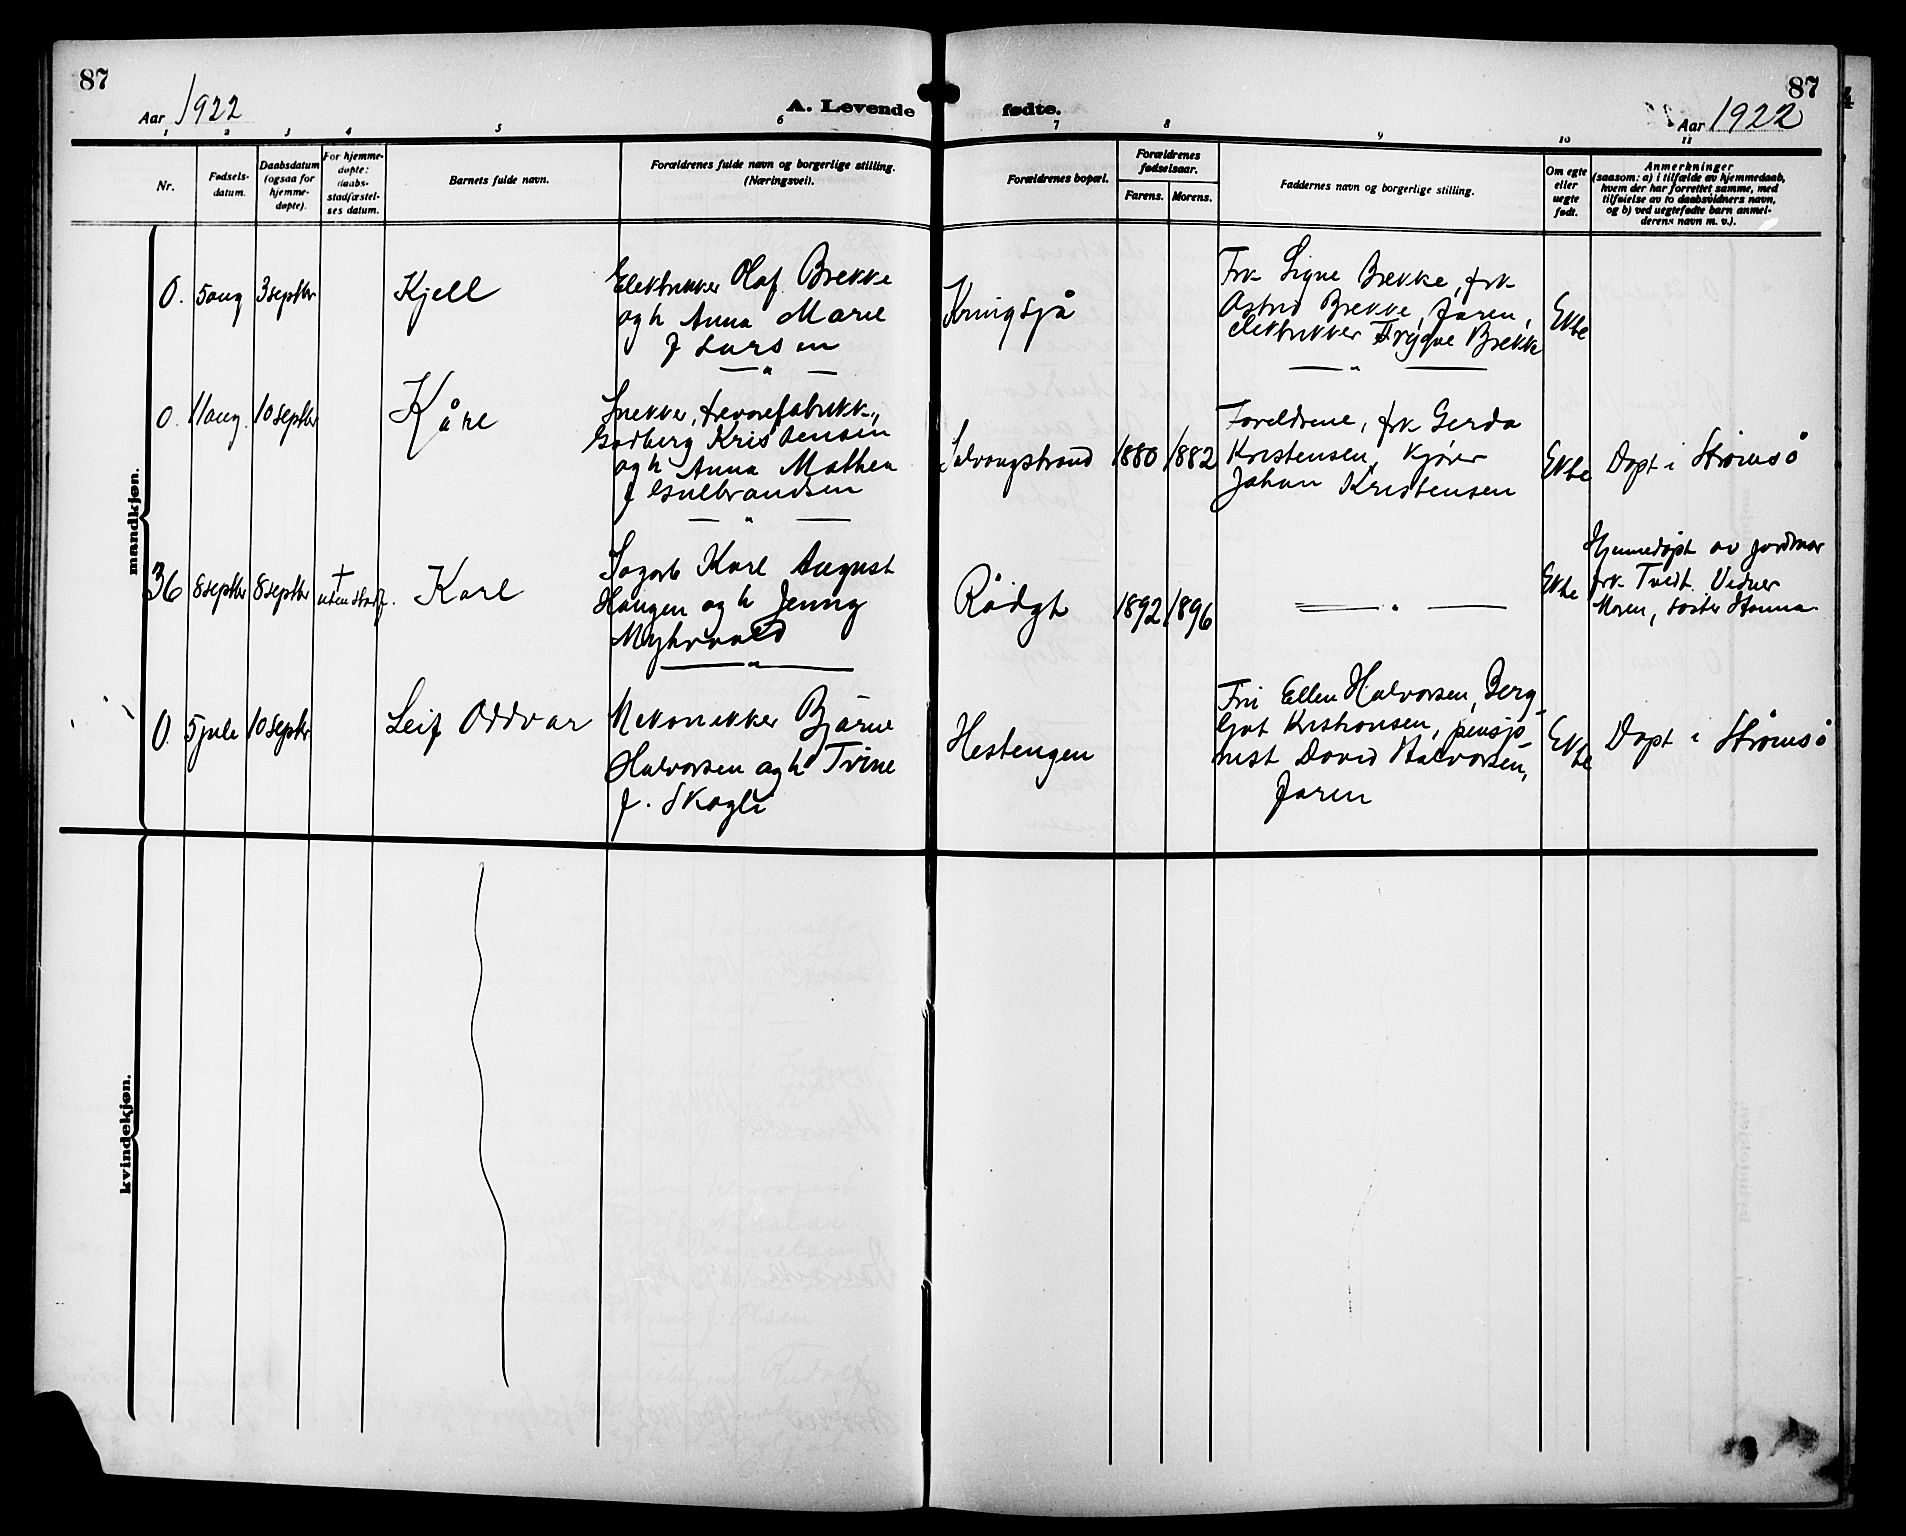 87
Aar 1922
A. Levende fødte.
87
Aar 1922
1 2 3 4 5 6 7 8 9 10 11
Nr.
Fødsels-
datum.
Daabsdatum
(ogsaa for
hjemme-
døpte).
For hjemme-
døpte:
daabs-
stadfæstel-
ses datum.
Barnets fulde navn.
Forældrenes fulde navn og borgerlige stilling.
(Næringsvei).
Forældrenes bopæl.
Forældrenes
fødselsaar.
Farens. Morens.
Faddernes navn og borgerlige stilling.
Om egte
eller
uegte
født.
Anmerkninger
(saasom: a) i tilfælde av hjemmedaab,
hvem der har forrettet samme, med
tilføielse av to daabsvidners navn,
og b) ved uegtefødte barn anmel-
derens navn m. v.).
mandkjøn.
0. 5 aug 3 septbr
Kjell
Elektrikker Olaf Brekke
og h Anna Marie
f Larsen
Kringsjå
Frk Signe Brekke, frk
Astrid Brekke, Faren,
elektrikker Trygve Brekke
Ekte
0. 11 aug. 10 septbr
Kåre
Snekker, trevarefabrikk.,
Godberg Kristensen
og h Anna Mathea
f Gulbrandsen
Solvangstrand
1880 1882
Foreldrene, frk Gerda
Kristensen, kjører
Johan Kristensen
Ekte
Døpt i Strømsö
36 8 septbr 8 septbr
†
uten stadf.
Karl
Sagarb Karl August
Haugen og h Jenny
Myhrvold
Rødgt
1892 1896
Ekte
Hjemmedøpt av jordmor
frk Tvedt. Vidner
Moren, søster Hanna.
0. 5 jule 10 septbr
Leif Oddvar
Mekanikker Bjarne
Halvorsen og h Trine
f. Skogli
Hestengen
Fru Ellen Halvorsen, Berg-
ljot Kristiansen, pensjo-
nist David Halvorsen,
Faren
Ekte
Døpt i Strømsö
kvindekjøn.